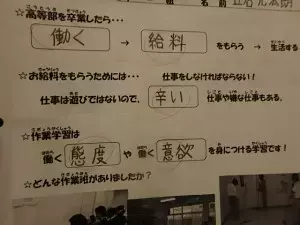 組 名前
☆高等部を卒業したら・・・
働く → 給料 をもらう → 生活する
☆お給料をもらうためには・・・ 仕事をしなければならない!
仕事は遊びではないので、 辛い 仕事や嫌な仕事もある。
☆作業学習は
働く 態度 や 働く 意欲 を身につける学習です!
☆どんな作業班がありましたか?